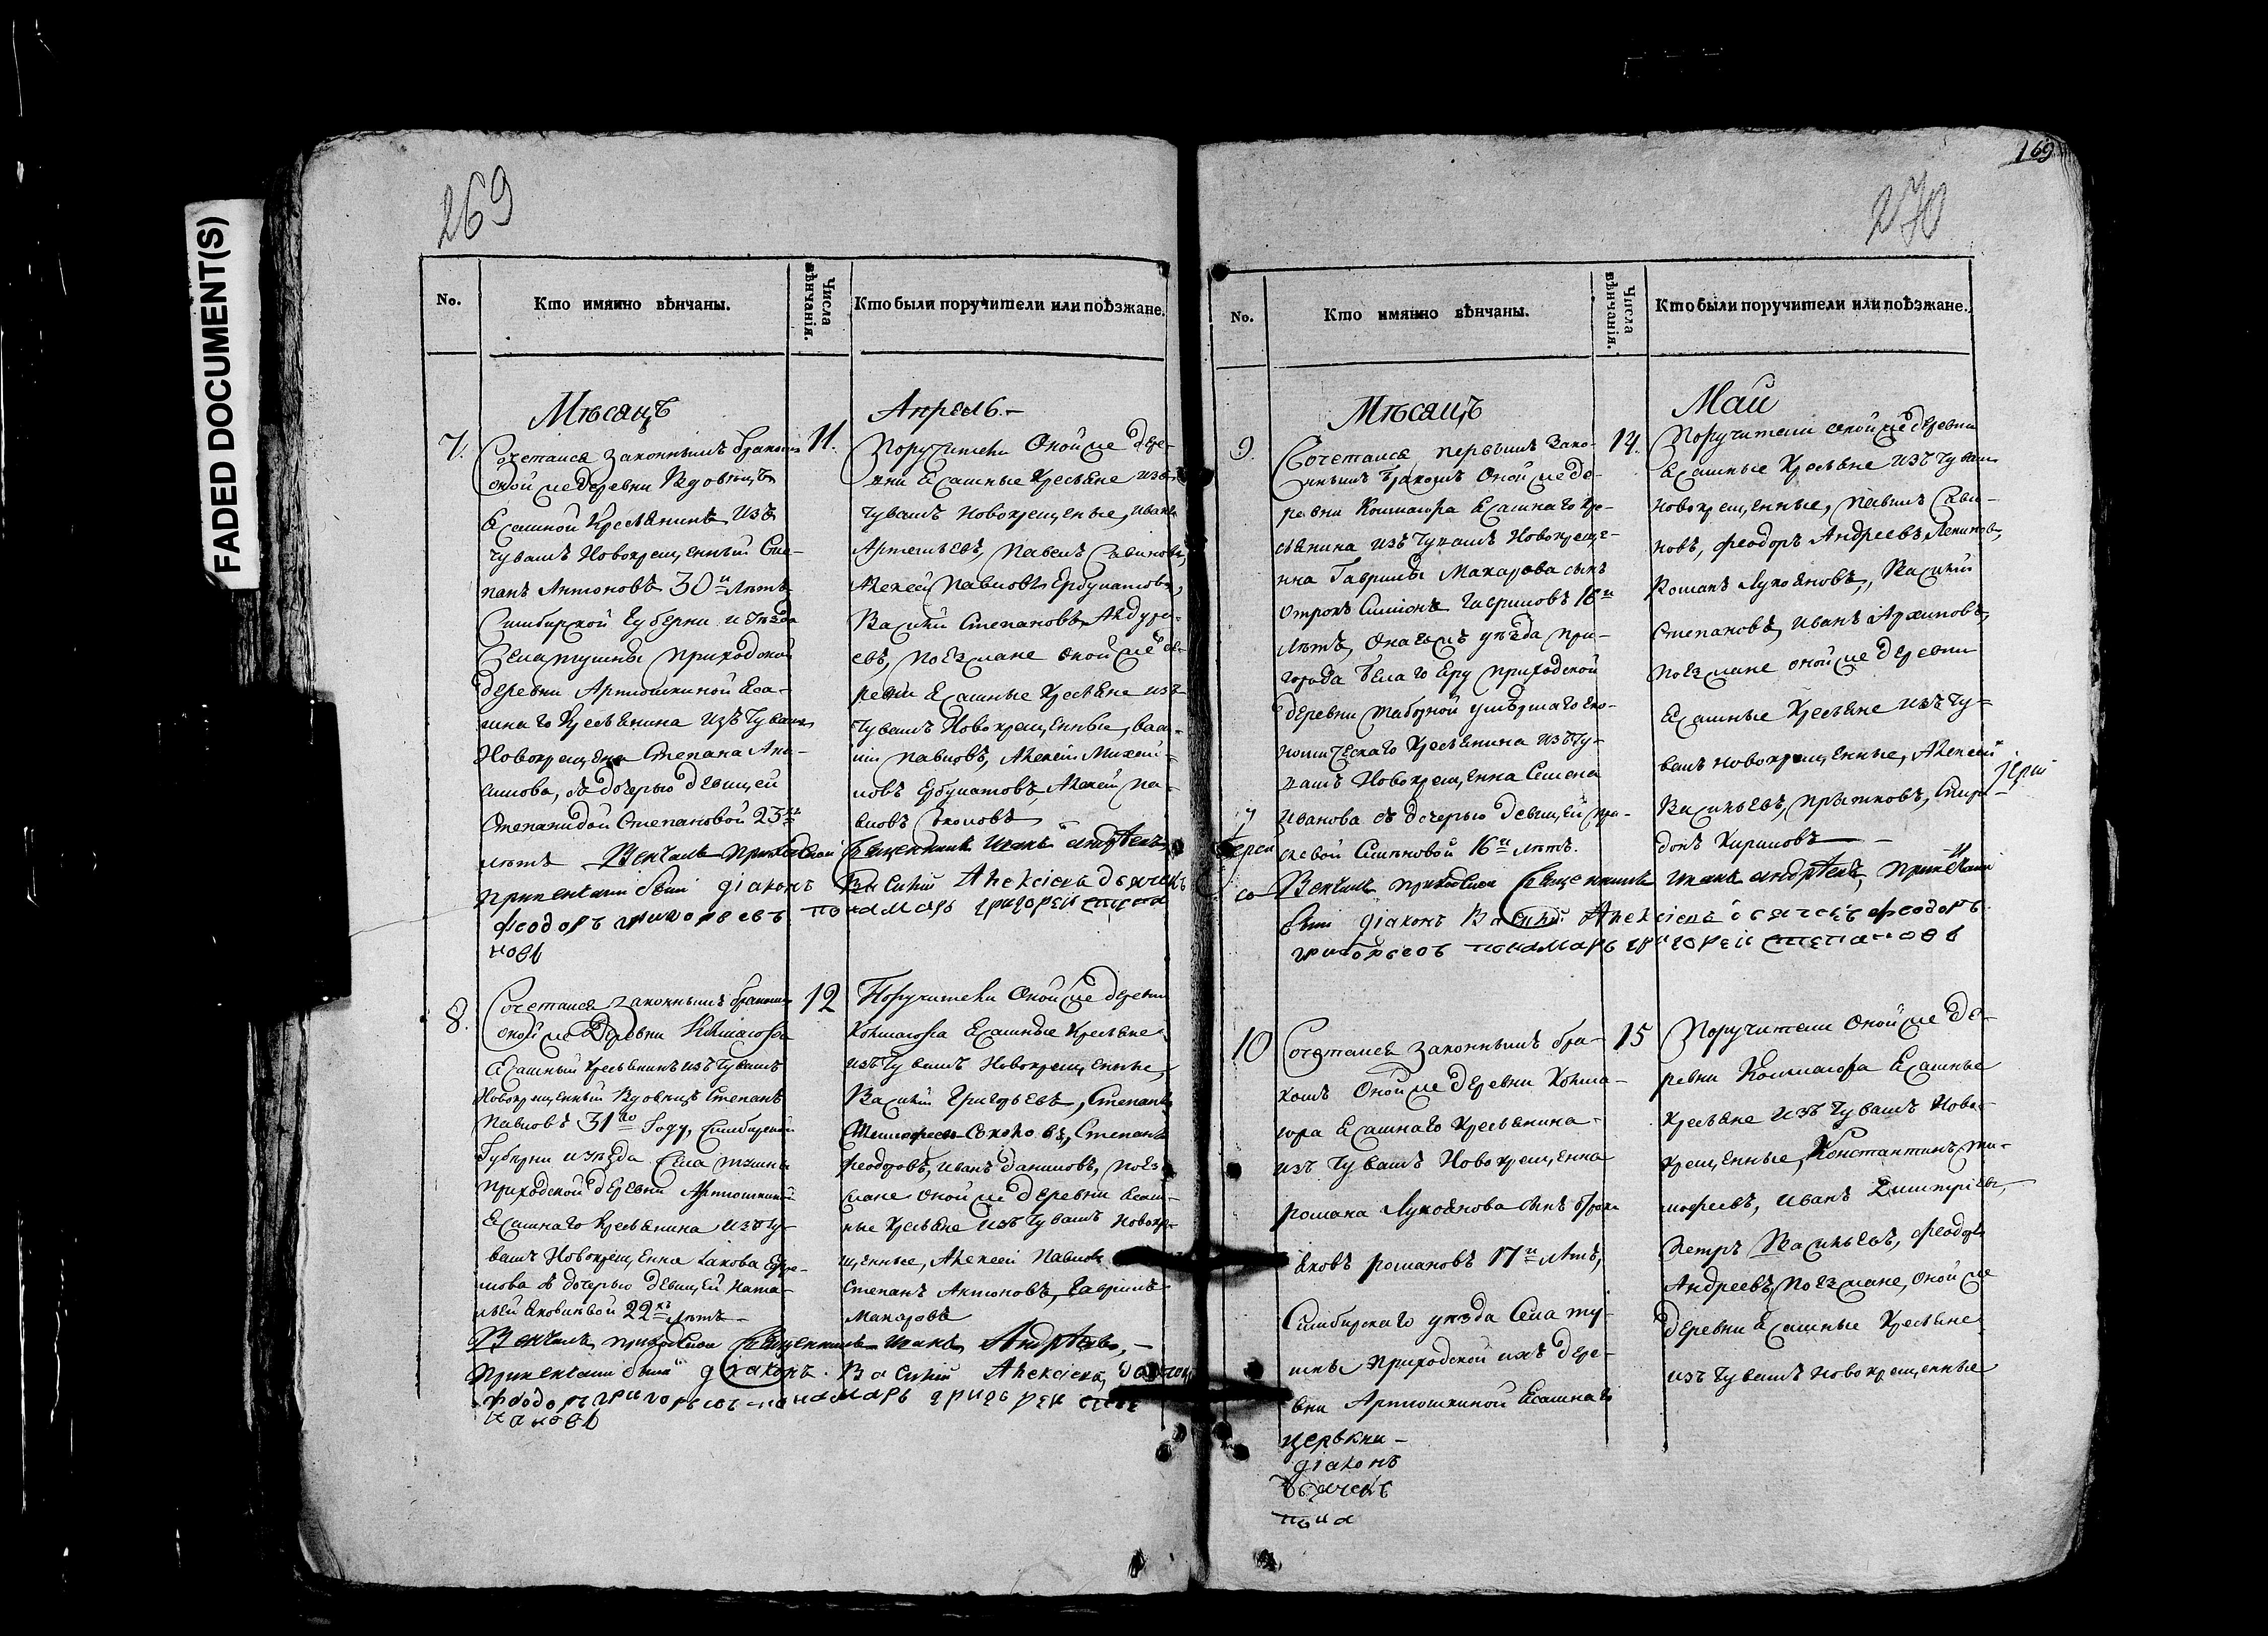 FADED DOCUMENT(S)
269
No.
Кто имянно вѣнчаны.
Числа вѣнчанія.
Кто были поручители или поѣзжане.
Мѣсяцъ
Апрель.-
7.
Сочетался законнымъ бракомъ
оной же деревни Вдовецъ
Ясашной Крестьянинъ изъ
чувашъ Новокрещенный Сте-
панъ Антоновъ 30и лѣтъ
Симбирской Губерни и уѣзда
Села тушны приходской
деревни Артюшкиной Яса-
шнаго Крестьянина изъ Чувашъ
Новокрещена Степана
съ дочерью девицей
Степанидой Степановой 25
лѣтъ Венчалъ приходской священникъ Иоаннъ Андреевъ
при венчании были діаконъ Василий Алексіевъ дьячекъ
феодоръ григорьевъ понамарь григорей степа
новъ
11.
Поручители Оной же дере-
вни Ясашные Крестьяне изъ
чувашъ новокрещеные, иванъ
Артемьевъ, Павелъ Савиновъ,
Алексей Павловъ
Василий Степановъ
поезжане оной же де-
ревни Ясашные Крестьяне изъ
Чувашъ Новокрещенные, Васи-
лий Павловъ, Алексей Михай-
ловъ Алексей Па-
вловъ Соколовъ
8.
Сочетался законнымъ бракомъ
оной же деревни
Ясашный Крестьянинъ изъ Чувашъ
Новокрещенный Вдовецъ Степанъ
Павловъ 31го Году, Симбирской
Губерни и уѣзда села тушны
приходской деревни Артюшкиной
Ясашнаго Крестьянина изъ Чу-
вашъ Новокрещенна Iакова Ефре-
мова съ дочерью девицей Ната-
льей Яковлевой 22хъ лѣтъ -
Венчалъ приходской священникъ Иоаннъ Андреевъ, -
при венчании были діаконъ Василий Алексіевъ, дьячокъ
феодоръ григорьевъ понамарь григорей степ
ановъ
12
Поручители Оной же деревни
Ясашные Крестьяне
изъ Чувашъ Новокрещеные,
Василий Григорьевъ, Степанъ
Тимофеевъ Соколовъ, Степанъ
Феодоровъ, иванъ Даниловъ, поез-
жане оной же деревни Ясаш-
ные Крестьяне изъ Чувашъ Новокре-
щенные, Алексей Павловъ
Степанъ Антоновъ, Гаврилъ
Макаровъ
169
270
No.
Кто имянно вѣнчаны.
Числа вѣнчанія.
Кто были поручители или поѣзжане.
Мѣсяцъ
Май
9.
Сочетался первымъ зако-
ннымъ бракомъ Оной же де-
ревни Ясашнаго Кре-
стьянина изъ Чувашъ Новокреще-
нна Гаврилы Макарова сынъ
отрокъ Симіонъ Гавриловъ 16и
лѣтъ, Онагожъ уѣзда при-
города Белаго Яру приходской
деревни Таборной умершаго Эко-
номическаго Крестьянина изъ Чу-
вашъ Новокрещенна Семена
Иванова съ дочерью девицей пра-
сковой Семеновой 16и лѣтъ.
Венчалъ приходской священникъ Иоаннъ Андреевъ, при венчании
были діаконъ Василий Алексіевъ дьячекъ феодоръ
григорьевъ понамарь григорей степановъ
14.
Поручители оной же деревни
Ясашные Крестьяне изъ Чувашъ
новокрещенные, Павелъ Сави-
новъ, феодоръ Андреевъ
Романъ Лукояновъ, Василий
Степановъ, Иванъ Архиповъ,
поезжане оной же деревни
Ясашные Крестьяне изъ Чу-
вашъ новокрещенные, Алексей
Васильевъ, Спири-
донъ Кириловъ
10
Сочетался законнымъ бра-
комъ Оной же деревни Кокша-
гора Ясашнаго Крестьянина
изъ Чувашъ Новокрещенна
романа Лукоянова сынъ отрокъ
Яковъ романовъ 17и лѣтъ,
Симбирскаго уѣзда Села ту-
шны приходской ихъ дере-
вни Артюшкиной Ясашнаго
церькви -
діаконъ
дьячекъ
пона
15
Поручители Оной же де-
ревни Ясашные
Крестьяне изъ Чувашъ Ново-
крещенные, Константинъ ти-
мофеевъ, Иванъ Димитріевъ,
Петръ Васильевъ, феодоръ
Андреевъ, поезжане, оной же
деревни Ясашные Крестьяне
изъ Чувашъ новокрещенные